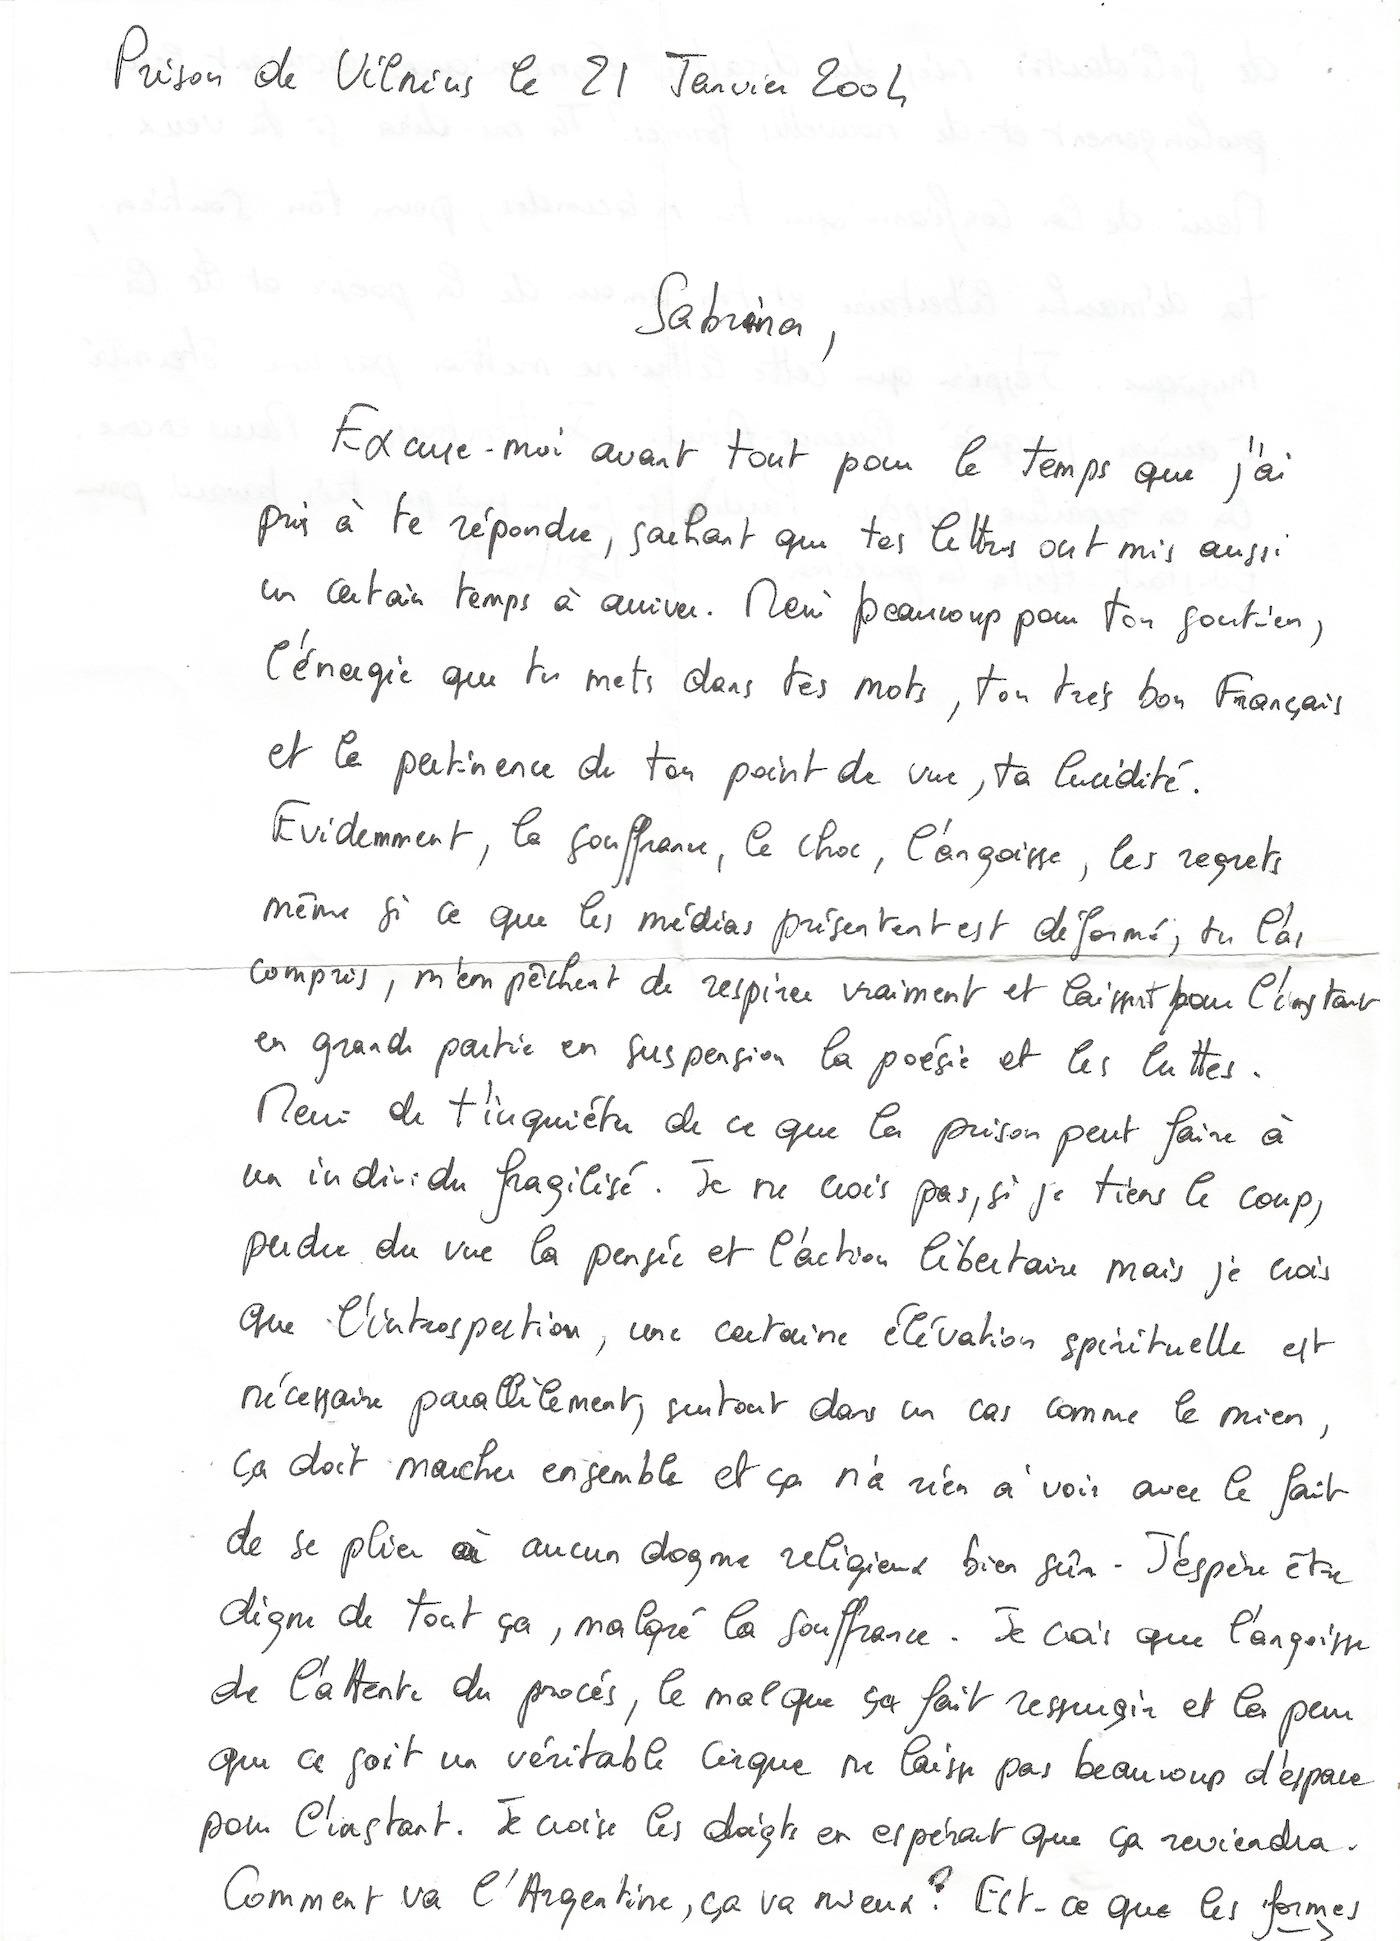 Prison de Vilnius le 21 Janvier 2004
Sabrina,
Excuse-moi avant tout pour le temps que j'ai
pris à te répondre, sachant que tes lettres ont mis aussi
un certain temps à arriver. Merci beaucoup pour ton soutien,
l'énergie que tu mets dans tes mots, ton très bon Français
et la pertinence de ton point de vue, ta lucidité.
Evidemment, la souffrance, le choc, l'angoisse, les regrets
même si ce que les médias présentent est déformé, tu l'as
compris, m'empêchent de respirer vraiment et laissent pour l'instant
en grande partie en suspension la poésie et les luttes.
Merci de t'inquiéter de ce que la prison peut faire à
un individu fragilisé. Je ne crois pas, si je tiens le coup,
perdre du vue la pensée et l'action libertaire mais je crois
que l'introspection, une certaine élévation spirituelle est
nécessaire parallèlement, surtout dans un cas comme le mien,
ça doit marcher ensemble et ça n'a rien à voir avec le fait
de se plier à aucun dogme religieux bien sûr. J'espère être
digne de tout ça, malgré la souffrance. Je crois que l'angoisse
de l'attente du procés, le mal que ça fait ressurgir et la peur
que ce soit un véritable cirque ne laisse pas beaucoup d'espace
pour l'instant. Je croise les doigts en espérant que ça reviendra.
Comment va l'Argentine, ça va mieux? Est-ce que les formes